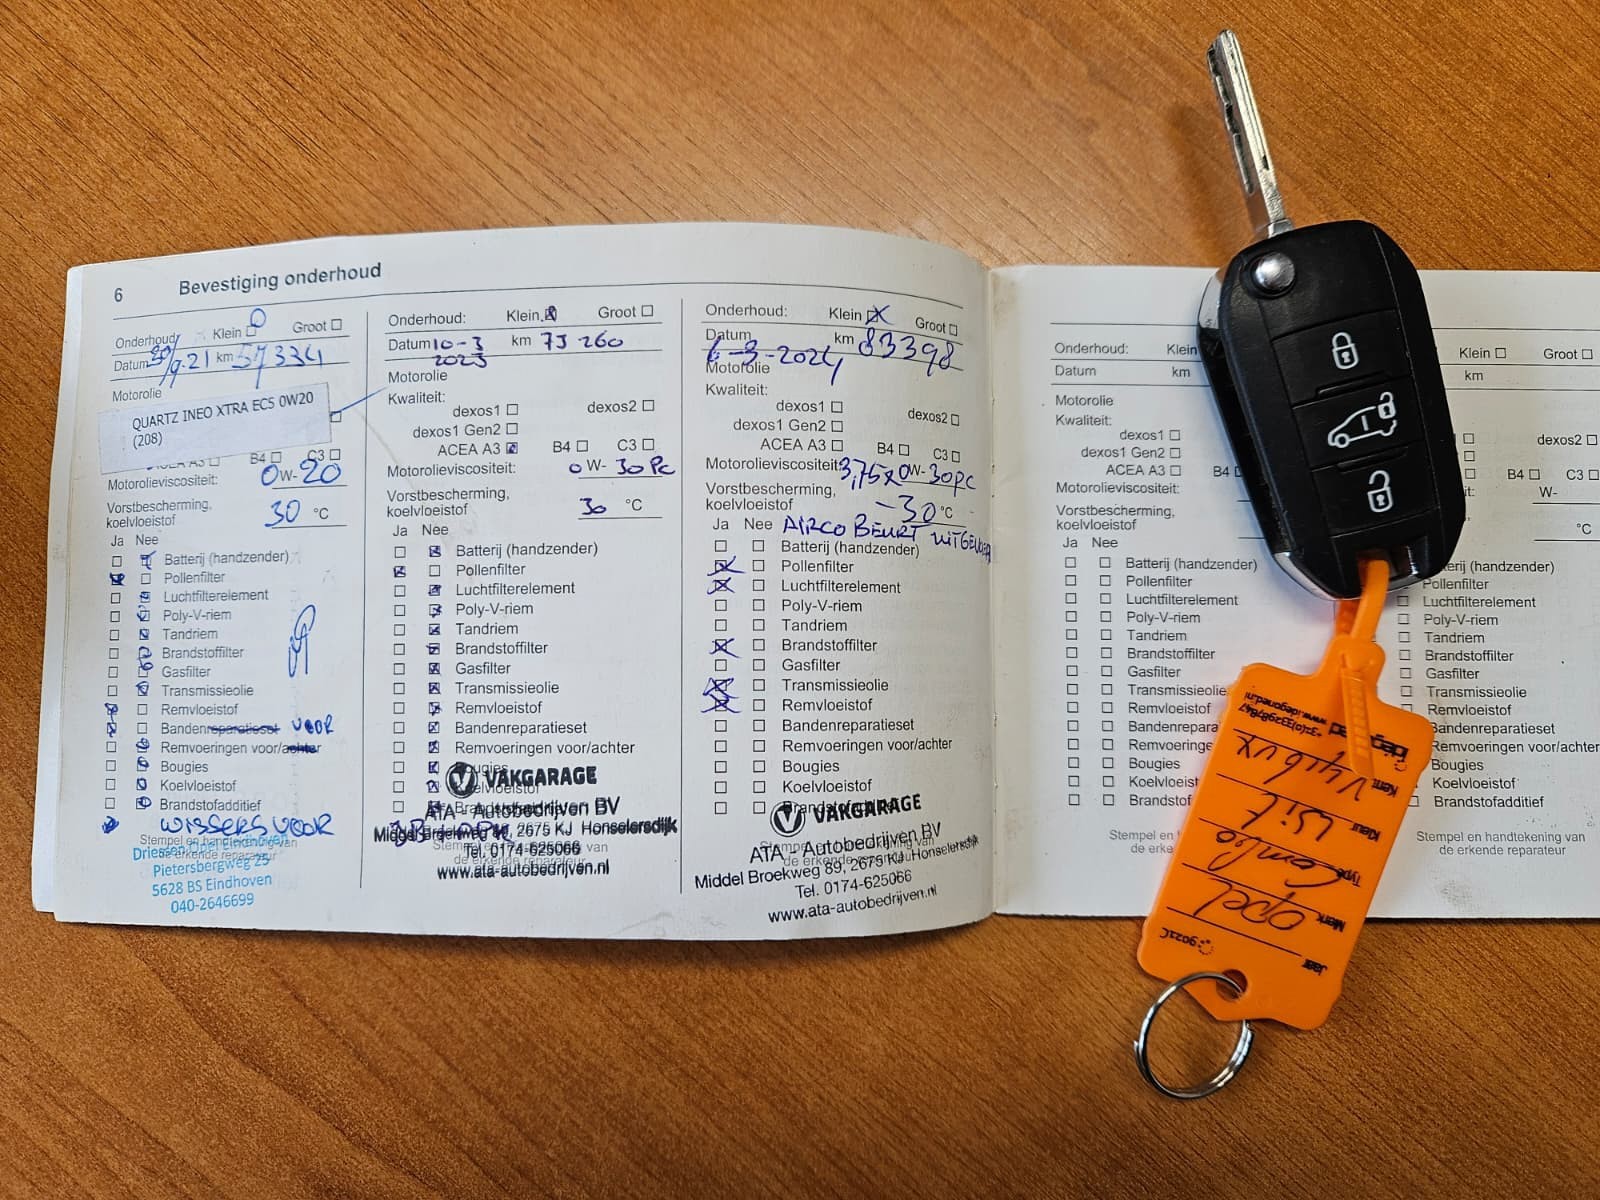 6 Bevestiging onderhoud
Onderhoud: Klein Groot
Datum 9.21 km 57334
Motorolie
QUARTZ INEO XTRA EC5 0W20
(208)
ACEA A3 B4 C3
Motorolieviscositeit: 0W-20
Vorstbescherming,
koelvloeistof 30 °C
Ja Nee
Batterij (handzender)
Pollenfilter
Luchtfilterelement
Poly-V-riem
Tandriem
Brandstoffilter
Gasfilter
Transmissieolie
Remvloeistof
Bandenreparatieset VOOR
Remvoeringen voor/achter
Bougies
Koelvloeistof
Brandstofadditief
WISSERS VOOR
Stempel en handtekening van
de erkende reparateur
Driessen Opel Eindhoven
Pietersbergweg 25
5628 BS Eindhoven
040-2646699
Onderhoud: Klein Groot
Datum 10-3 km 73 260
2023
Motorolie
Kwaliteit:
dexos1 dexos2
dexos1 Gen2
ACEA A3 B4 C3
Motorolieviscositeit: 0W-30
Vorstbescherming,
koelvloeistof 30 °C
Ja Nee
Batterij (handzender)
Pollenfilter
Luchtfilterelement
Poly-V-riem
Tandriem
Brandstoffilter
Gasfilter
Transmissieolie
Remvloeistof
Bandenreparatieset
Remvoeringen voor/achter
Bougies
Koelvloeistof
Brandstofadditief
VAKGARAGE
ATA - Autobedrijven BV
Middel Broekweg 89, 2675 KJ Honselersdijk
Tel. 0174-625066
www.ata-autobedrijven.nl
Onderhoud: Klein Groot
Datum 6-3-2024 km 83398
Motorolie
Kwaliteit:
dexos1 dexos2
dexos1 Gen2
ACEA A3 B4 C3
Motorolieviscositeit: 3,75x0W-30PC
Vorstbescherming,
koelvloeistof -30 °C
Ja Nee AIRCO BEURT
Batterij (handzender)
Pollenfilter
Luchtfilterelement
Poly-V-riem
Tandriem
Brandstoffilter
Gasfilter
Transmissieolie
Remvloeistof
Bandenreparatieset
Remvoeringen voor/achter
Bougies
Koelvloeistof
Brandstofadditief
VAKGARAGE
ATA - Autobedrijven BV
de erkende reparateur
Middel Broekweg 89, 2675 KJ Honselersdijk
Tel. 0174-625066
www.ata-autobedrijven.nl
Onderhoud: Klein
Datum km
Motorolie
Kwaliteit:
dexos1
dexos1 Gen2
ACEA A3 B4
Motorolieviscositeit:
Vorstbescherming,
koelvloeistof
Ja Nee
Batterij (handzender)
Pollenfilter
Luchtfilterelement
Poly-V-riem
Tandriem
Brandstoffilter
Gasfilter
Transmissieolie
Remvloeistof
Bandenrepara
Remvoeringen
Bougies
Koelvloeist
Brandstof
Stempel en
de erke
Klein Groot
km
dexos2
B4 C3
W-
°C
Pollenfilter
Luchtfilterelement
Poly-V-riem
Tandriem
Brandstoffilter
Gasfilter
Transmissieolie
Remvloeistof
Bandenreparatieset
Remvoeringen voor/achter
Bougies
Koelvloeistof
Brandstofadditief
Stempel en handtekening van
de erkende reparateur
www.idegoned.nl
Kent
Kleur Wit
Type Combo
Merk Opel
Jaar